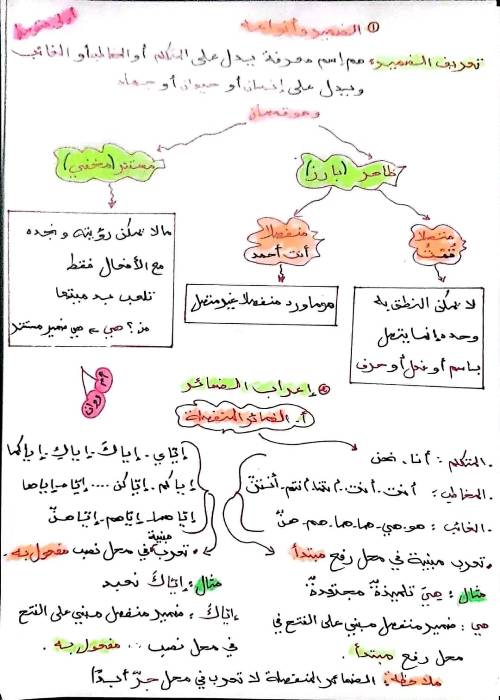 أولى متوسط
① الضمير وأنواعه
تعريف الضمير: هو إسم معرفة يدل على المتكلم أو المخاطب أو الغائب
ويدل على إنسان أو حيوان أو جماد
وهو قسمان
ظاهر (بارز)
مستتر (مخفي)
متصلا
قمْتُ
منفصلا
أنت أحمد
لا يمكن النطق به
وحده إنما يتصل
باسم أو فعل أو حرف
هو ما ورد منفصلا غير متصل
ما لا يمكن رؤيته و نجده
مع الأفعال فقط
تلعب مبتها
من؟ هي ← هي ضمير مستتر
② إعراب الضمائر
أ. الضمائر المنفصلة
. المتكلم: أنا. نحن
. المخاطب: أنتَ. أنتِ. أنتما. أنتم. أنتنّ
. الغائب: هو. هي. هما. هما. هم. هنّ
• تعرب مبنية في محل رفع مبتدأ
مثال: هِيَ تلميذةٌ مجتهدةٌ
هي: ضمير منفصل مبني على الفتح في
محل رفع مبتدأ.
إيّاي. إياكَ. إياكِ. إياكما
إياكم. إياكنّ .... إيّاه. إياها
إيّاهما. إيّاهم. إيّاهنّ
• تعرب مبنية في محل نصب مفعول به.
مثال: إيّاكَ نعبد
إيّاكَ: ضمير منفصل مبني على الفتح
في محل نصب .. مفعول به.
ملاحظة: الضمائر المنفصلة لا تعرب في محل جرّ أبدًا